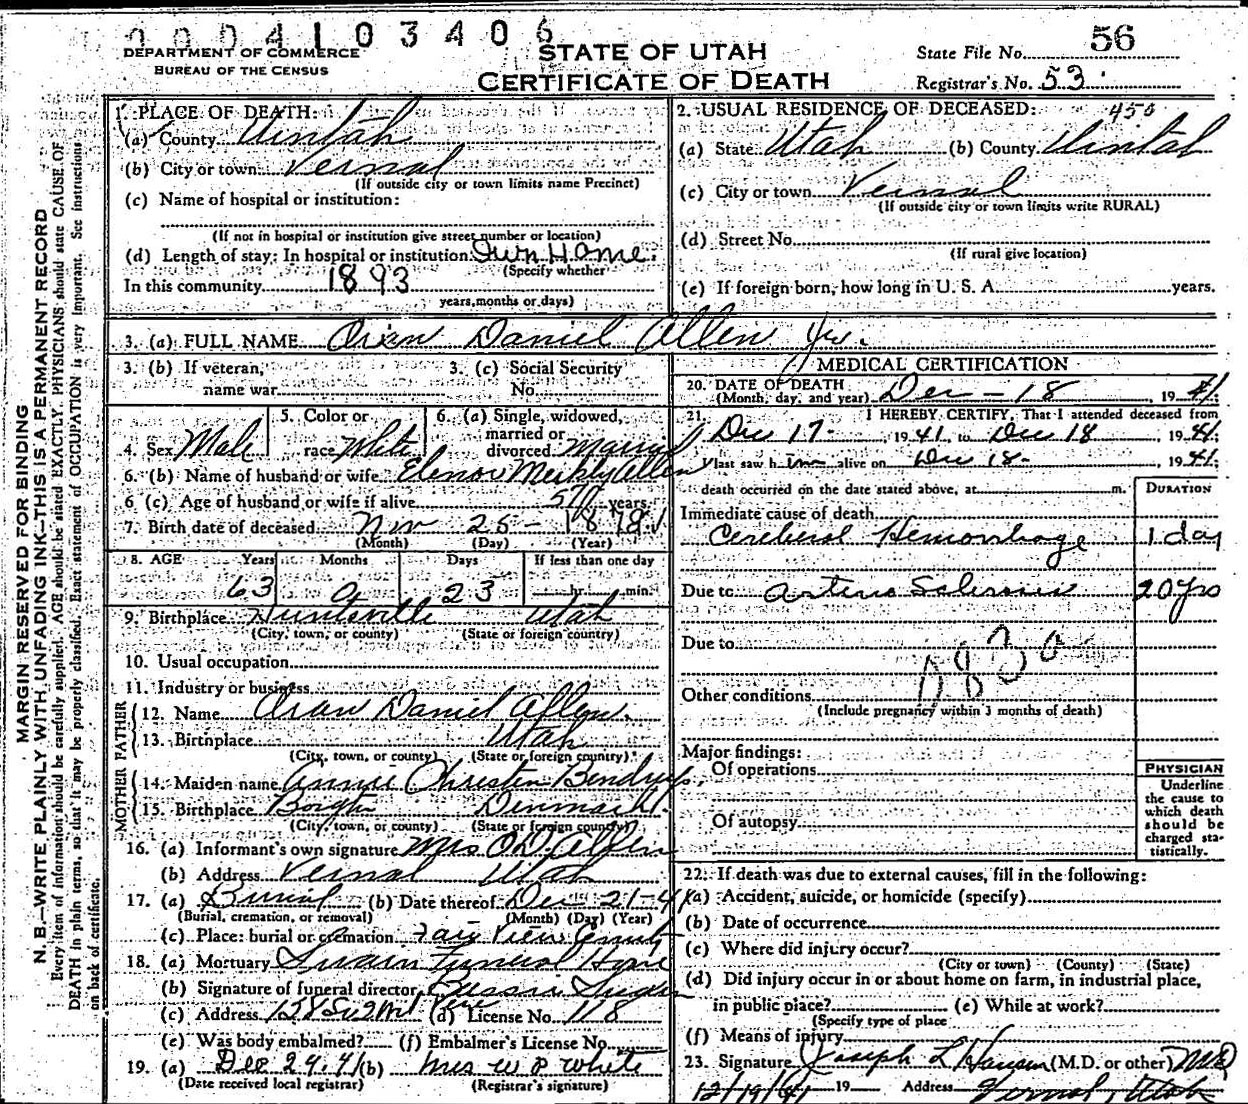 0004103406
DEPARTMENT OF COMMERCE
BUREAU OF THE CENSUS
STATE OF UTAH
CERTIFICATE OF DEATH
State File No. 56
Registrar's No. 53
MARGIN RESERVED FOR BINDING
N. B.—WRITE PLAINLY WITH UNFADING INK—THIS IS A PERMANENT RECORD
Every item of information should be carefully supplied. AGE should be stated EXACTLY. PHYSICIANS should state CAUSE OF
DEATH in plain terms, so that it may be properly classified. Exact statement of OCCUPATION is very important. See instructions
on back of certificate.
1. PLACE OF DEATH:
(a) County Uintah
(b) City or town Vernal
(If outside city or town limits name Precinct)
(c) Name of hospital or institution:
(If not in hospital or institution give street number or location)
(d) Length of stay: In hospital or institution: Own Home.
(Specify whether
In this community 1893
years, months or days)
2. USUAL RESIDENCE OF DECEASED: 450
(a) State Utah (b) County Uintah
(c) City or town Vernal
(If outside city or town limits write RURAL)
(d) Street No.
(If rural give location)
(e) If foreign born, how long in U. S. A. years.
3. (a) FULL NAME Oran Daniel Allen Jr.
3. (b) If veteran,
name war
3. (c) Social Security
No.
4. Sex Male
5. Color or
race White
6. (a) Single, widowed,
married or
divorced married
6. (b) Name of husband or wife Allen
6 (c) Age of husband or wife if alive years.
7. Birth date of deceased Nov 25 - 1878
(Month) (Day) (Year)
8. AGE Years Months Days If less than one day
63 0 23 hr. min.
9. Birthplace Huntsville Utah
(City, town, or county) (State or foreign country)
10. Usual occupation
11. Industry or business
FATHER
12. Name Oran Daniel Allen.
13. Birthplace Utah
(City, town, or county) (State or foreign country)
MOTHER
14. Maiden name Annie Christen
15. Birthplace Denmark.
(City, town, or county) (State or foreign country)
16. (a) Informant's own signature Mrs O.D. Allen
(b) Address Vernal Utah
17. (a) Burial (b) Date thereof Dec 21-41
(Burial, cremation, or removal) (Month) (Day) (Year)
(c) Place: burial or cremation Fair View
18. (a) Mortuary Swain Funeral Home
(b) Signature of funeral director
(c) Address (d) License No. 118
(e) Was body embalmed? (f) Embalmer's License No.
19. (a) Dec 29.41 (b) Mrs W P White
(Date received local registrar) (Registrar's signature)
MEDICAL CERTIFICATION
20. DATE OF DEATH
(Month, day, and year) Dec - 18, 1941
21. I HEREBY CERTIFY, That I attended deceased from
Dec 17-, 1941, to Dec 18, 1941;
I last saw him alive on Dec 18-, 1941;
death occurred on the date stated above, at m.
DURATION
Immediate cause of death
Cerebral Hemorrhage 1 day
Due to 20 yrs
Due to
0830
Other conditions
(Include pregnancy within 3 months of death)
Major findings:
Of operations
Of autopsy
PHYSICIAN
Underline
the cause to
which death
should be
charged sta-
tistically.
22. If death was due to external causes, fill in the following:
(a) Accident, suicide, or homicide (specify)
(b) Date of occurrence
(c) Where did injury occur?
(City or town) (County) (State)
(d) Did injury occur in or about home on farm, in industrial place,
in public place? (e) While at work?
(Specify type of place
(f) Means of injury
23. Signature Joseph L Hansen (M.D. or other) MD
12/19/41 19 Address Vernal, Utah